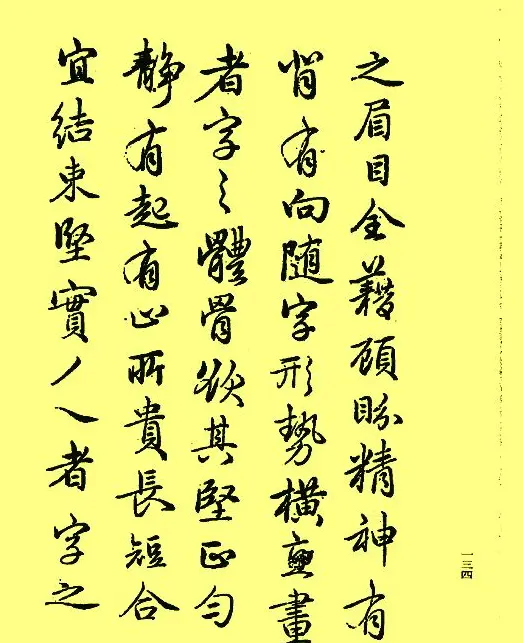 之眉目全藉顧盼精神有
背有向随字形勢横直畫
者字之體骨欲其堅正勻
靜有起有止所貴長短合
宜結束堅實丿乀者字之
一三四